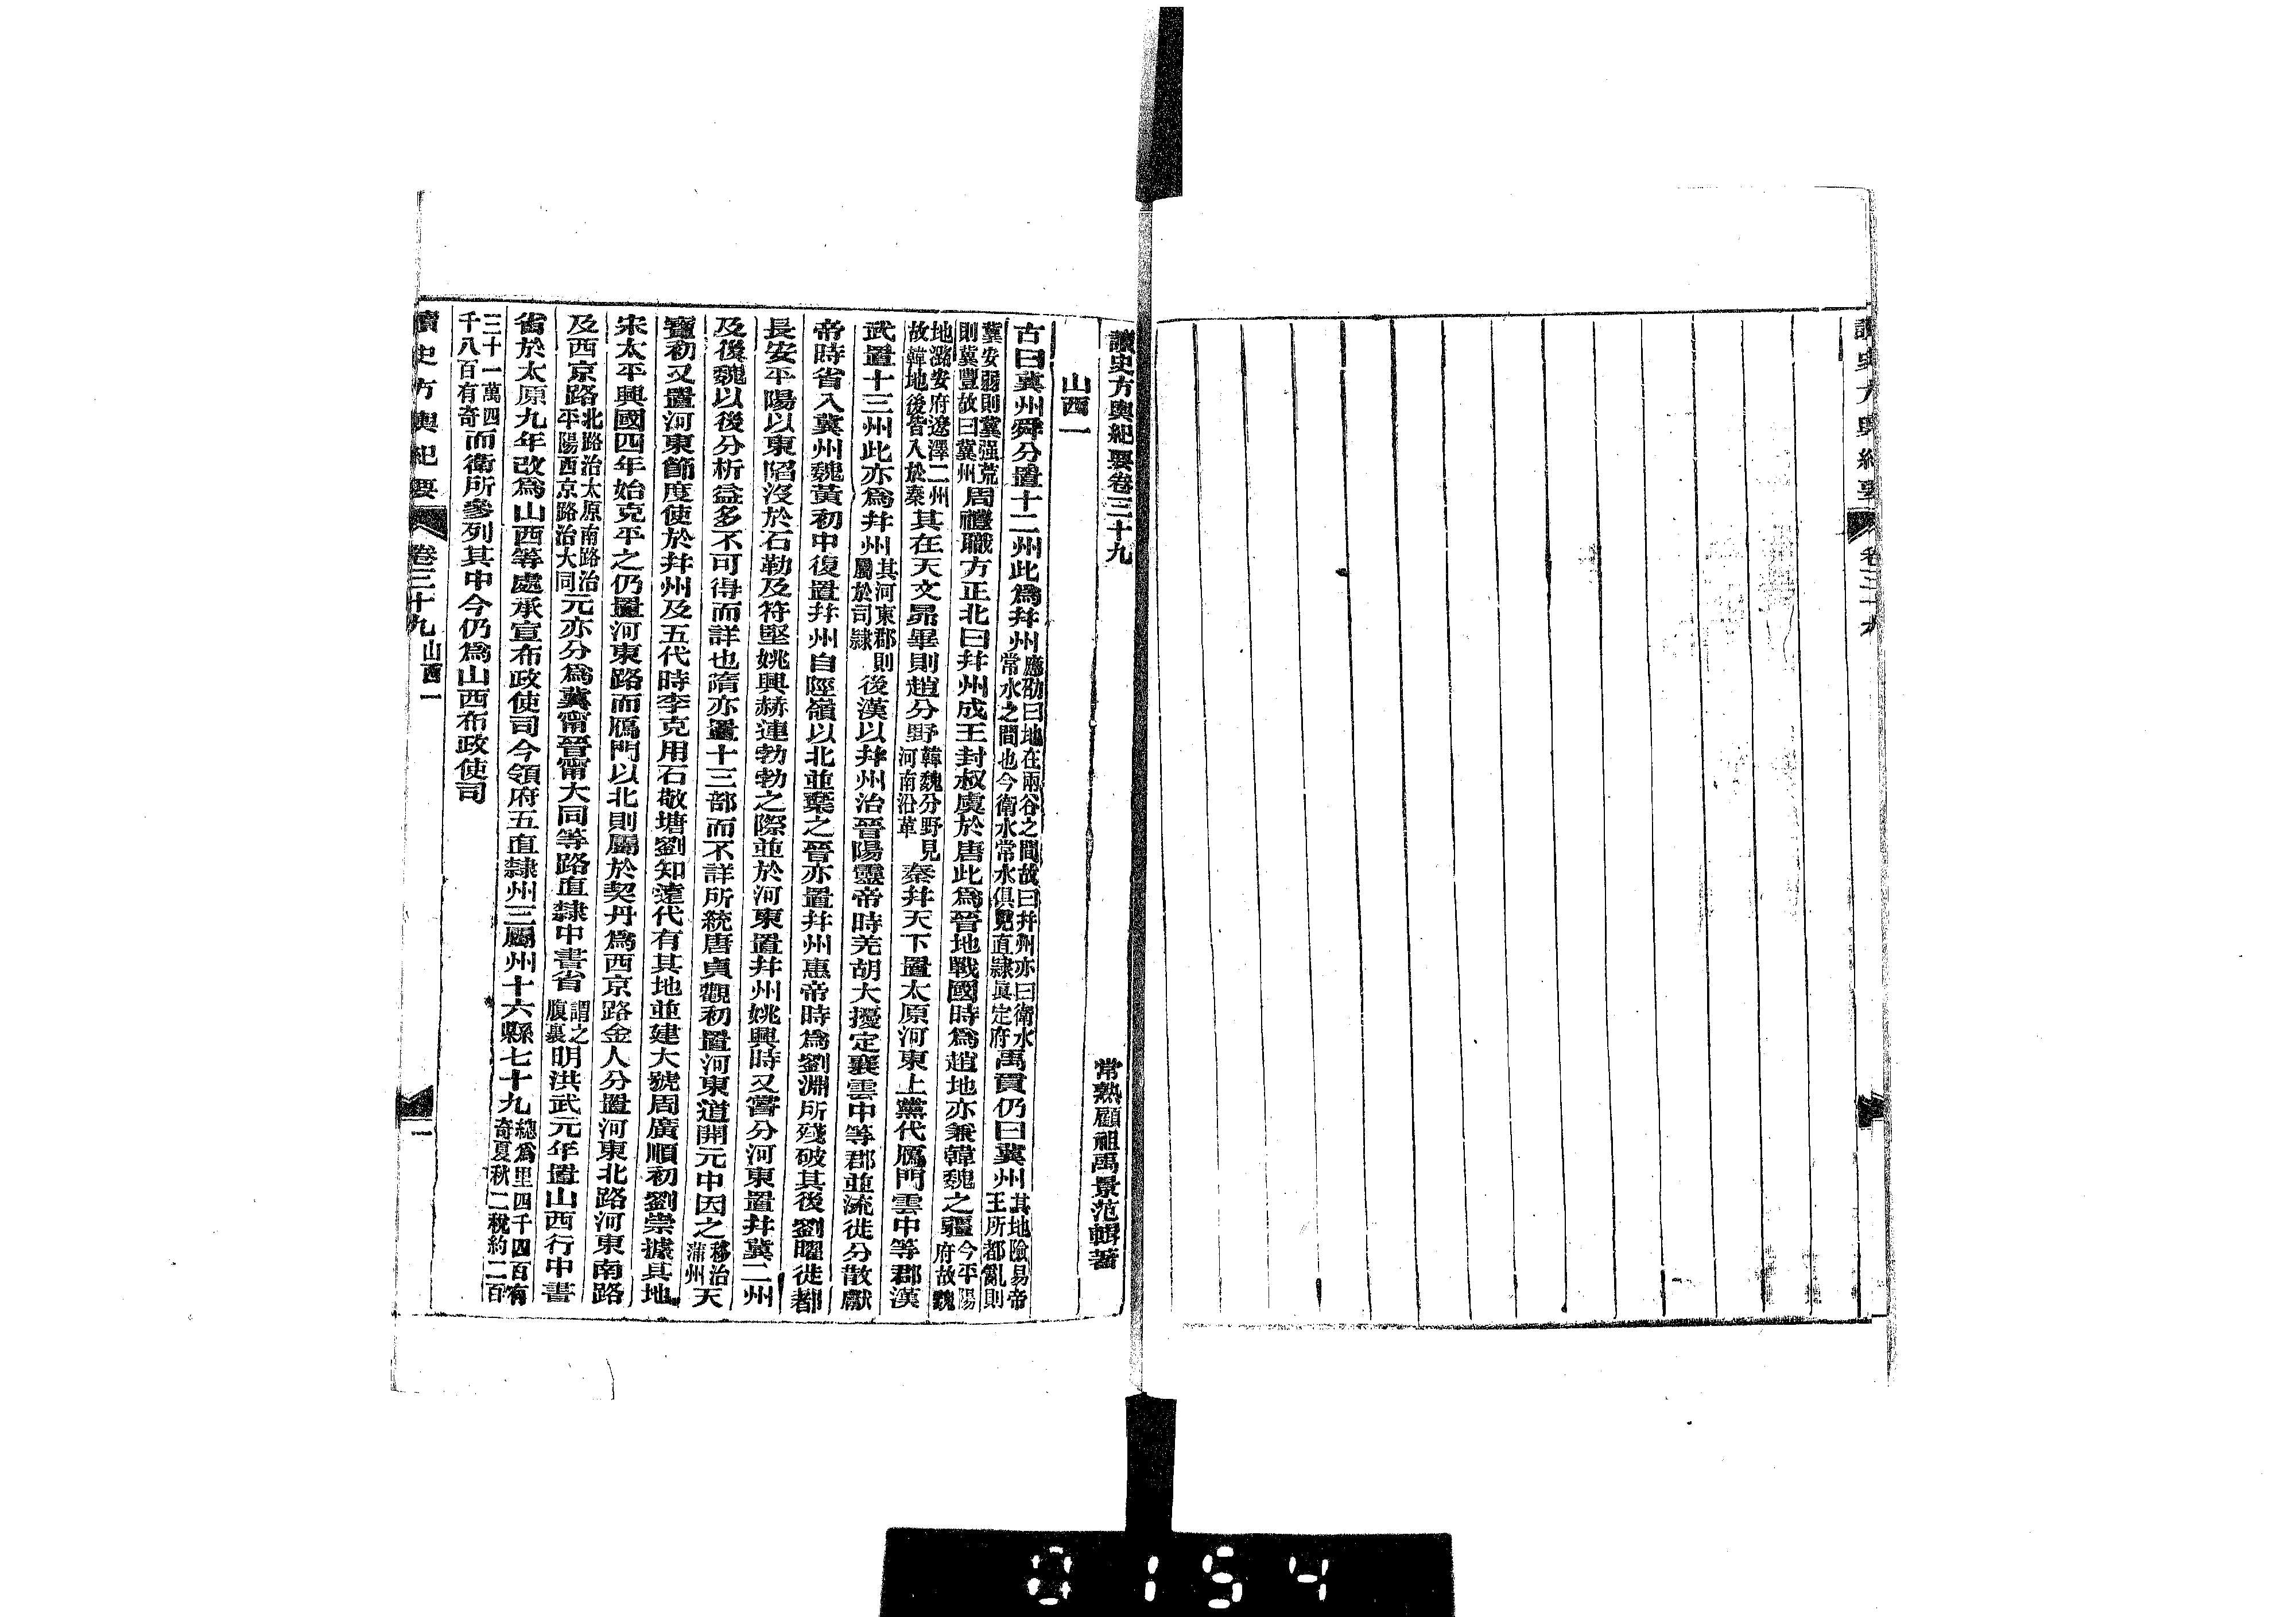 讀史方輿紀要卷三十九
常熟顧祖禹景范輯著
山西一
古曰冀州舜分置十二州此爲幷州應劭曰地在兩谷之間故曰幷州亦曰衛水常水之間也今衛水常水俱見直隸眞定府禹貢仍曰冀州其地險易帝王所都亂則
冀安弱則冀强荒則冀豐故曰冀州周禮職方正北曰幷州成王封叔虞於唐此爲晉地戰國時爲趙地亦兼韓魏之疆今平陽府故魏
地潞安府遼澤二州故韓地後皆入於秦其在天文昴畢則趙分野韓魏分野見河南沿革秦幷天下置太原河東上黨代鴈門雲中等郡漢
武置十三州此亦爲幷州其河東郡則屬於司隸後漢以幷州治晉陽靈帝時羌胡大擾定襄雲中等郡並流徙分散獻
帝時省入冀州魏黃初中復置幷州自陘嶺以北並棄之晉亦置幷州惠帝時爲劉淵所殘破其後劉曜徙都
長安平陽以東陷沒於石勒及符堅姚興赫連勃勃之際並於河東置幷州姚興時又嘗分河東置幷冀二州
及後魏以後分析益多不可得而詳也隋亦置十三部而不詳所統唐貞觀初置河東道開元中因之移治蒲州天
寶初又置河東節度使於幷州及五代時李克用石敬塘劉知遠代有其地並建大號周廣順初劉崇據其地
宋太平興國四年始克平之仍置河東路而鴈門以北則屬於契丹爲西京路金人分置河東北路河東南路
及西京路北路治太原南路治平陽西京路治大同元亦分爲冀甯晉甯大同等路直隸中書省謂之腹裏明洪武元年置山西行中書
省於太原九年改爲山西等處承宣布政使司今領府五直隸州三屬州十六縣七十九總爲里四千四百有奇夏秋二稅約二百
三十一萬四千八百有奇而衛所參列其中今仍爲山西布政使司
讀史方輿紀要 卷三十九 山西一 一
0154